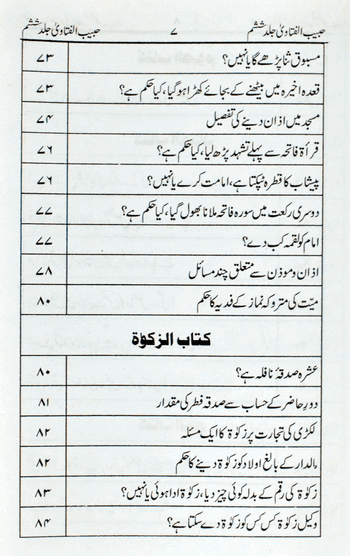 حبیب الفتاویٰ جلد ششم ۷ حبیب الفتاویٰ جلد ششم
مسبوق ثنا پڑھے گا یا نہیں؟ ۷۳
قعدہ اخیرہ میں بیٹھنے کے بجائے کھڑا ہو گیا، کیا حکم ہے؟ ۷۳
مسجد میں اذان دینے کی تفصیل ۷۴
قرأۃ فاتحہ سے پہلے تشہد پڑھ لیا، کیا حکم ہے؟ ۷۶
پیشاب کا قطرہ ٹپکتا ہے، امامت کرے یا نہیں؟ ۷۶
دوسری رکعت میں سورہ فاتحہ ملانا بھول گیا، کیا حکم ہے؟ ۷۷
امام کو لقمہ کب دے؟ ۷۷
اذان و موذن سے متعلق چند مسائل ۷۸
میّت کی متروکہ نماز کے فدیہ کا حکم ۸۰
کتاب الزکوٰۃ
عشرہ صدقۂ نافلہ ہے؟ ۸۰
دورِ حاضر کے حساب سے صدقہ فطر کی مقدار ۸۱
لکڑی کی تجارت پر زکوٰۃ کا ایک مسئلہ ۸۲
مالدار کے بالغ اولاد کو زکوٰۃ دینے کا حکم ۸۲
زکوٰۃ کی رقم کے بدلہ کوئی چیز دیا، زکوٰۃ ادا ہوئی یا نہیں؟ ۸۳
وکیل زکوٰۃ کس کس کو زکوٰۃ دے سکتا ہے؟ ۸۴